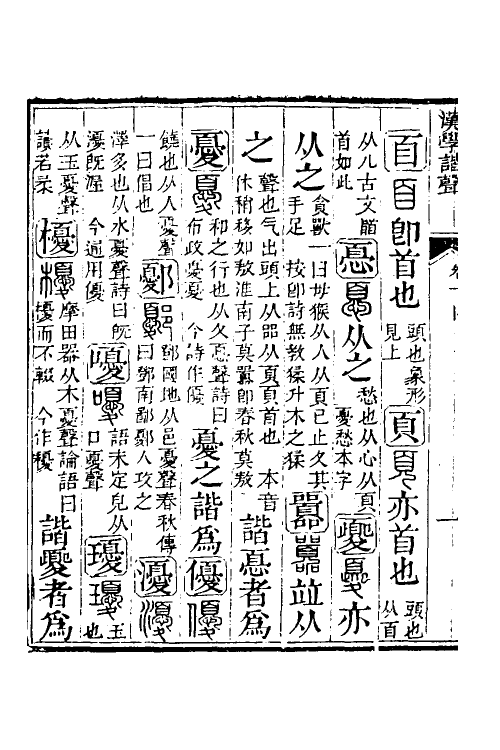 漢學諧聲
𦣻𦣻即首也頭也象形見上頁頁亦首也頭也从百
从儿古文𩠐首如此㥑㥑从之愁也从心从頁憂愁本字夒夒亦
从之貪獸一曰母猴从人从頁巳止夊其手足 按即詩無教猱升木之猱囂囂竝从
之聲也气出頭上从㗊从頁頁首也 本音休稍移如敖淮南子莫囂即春秋莫敖諧㥑者為
憂憂和之行也从夊㥑聲詩曰布政憂憂 今詩作優憂之諧為優優
饒也从人憂聲一曰倡也鄾鄾鄧國地从邑憂聲春秋傳曰鄧南鄙鄾人攻之瀀瀀
澤多也从水憂聲詩曰既瀀既渥 今通用優嚘嚘語未定皃从口憂聲瓇瓇玉也
从玉憂聲讀若柔櫌櫌摩田器从木憂聲論語曰櫌而不輟 今作耰諧夒者為